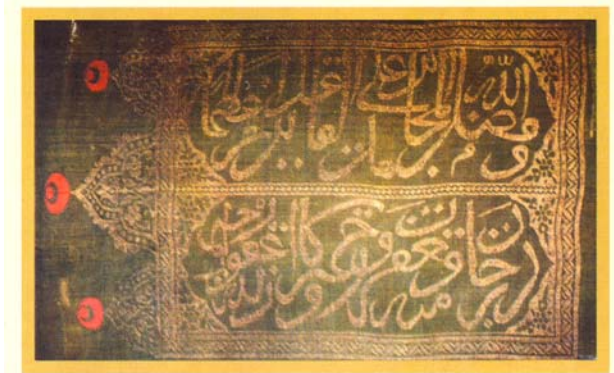 وفضل الله المجاهدين على القاعدين اجرا عظيما
درجات منه ومغفرة ورحمة وكان الله غفورا رحيما